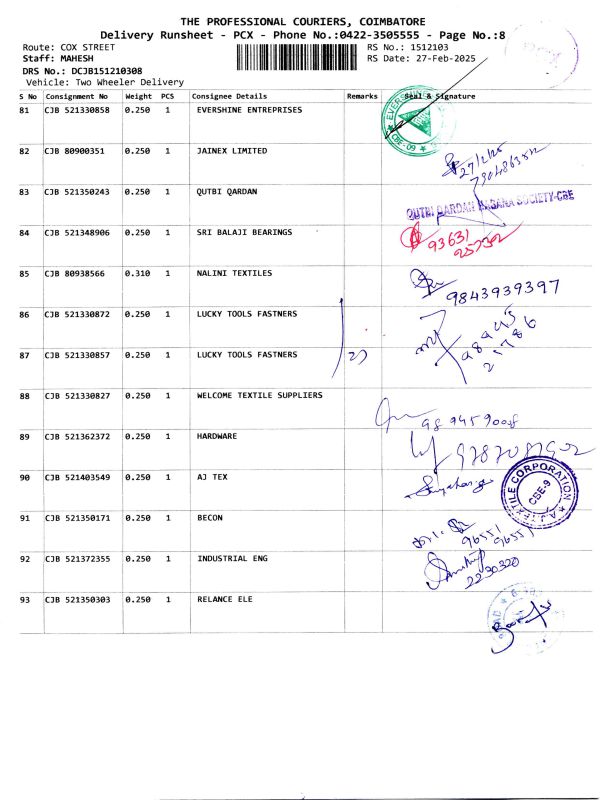 THE PROFESSIONAL COURIERS, COIMBATORE
Delivery Runsheet - PCX - Phone No.:0422-3505555 - Page No.:8
Route: COX STREET RS No.: 1512103
Staff: MAHESH RS Date: 27-Feb-2025
DRS No.: DCJB151210308
Vehicle: Two Wheeler Delivery
S No Consignment No Weight PCS Consignee Details Remarks Seal & Signature
81 CJB 521330858 0.250 1 EVERSHINE ENTREPRISES
CBE-09
82 CJB 80900351 0.250 1 JAINEX LIMITED
27/2/25
83 CJB 521350243 0.250 1 QUTBI QARDAN
QUTBI QARDAN HASANA SOCIETY-CBE
84 CJB 521348906 0.250 1 SRI BALAJI BEARINGS
93631
25732
85 CJB 80938566 0.310 1 NALINI TEXTILES
9843939397
86 CJB 521330872 0.250 1 LUCKY TOOLS FASTNERS
87 CJB 521330857 0.250 1 LUCKY TOOLS FASTNERS
88 CJB 521330827 0.250 1 WELCOME TEXTILE SUPPLIERS
89 CJB 521362372 0.250 1 HARDWARE
90 CJB 521403549 0.250 1 AJ TEX
TEXTILE CORPORATION
CBE-9
91 CJB 521350171 0.250 1 BECON
96551
96551
92 CJB 521372355 0.250 1 INDUSTRIAL ENG
2230320
93 CJB 521350303 0.250 1 RELANCE ELE